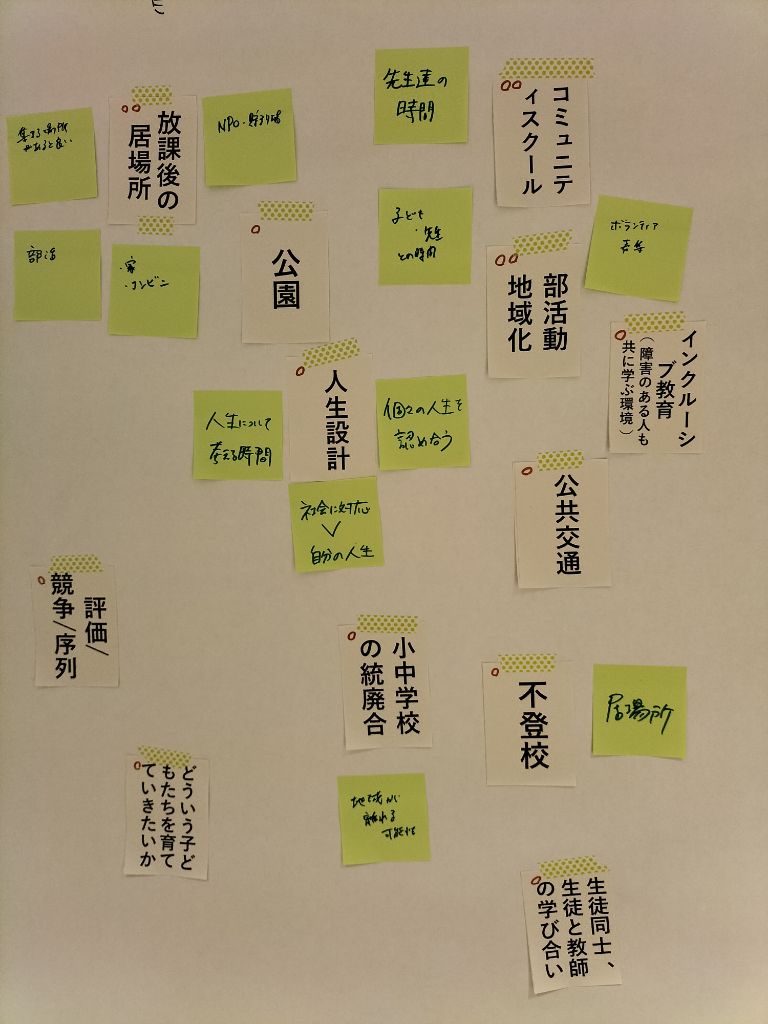 集まる場所
があると良い
放課後の
居場所
部活
・家
・コンビニ
公園
先生達の
時間
コミュニテ
ィスクール
子ども
・先生
との時間
部活動
地域化
ボランティア
インクルーシ
ブ教育
（障害のある人も
共に学ぶ環境）
人生設計
人生について
考える時間
個々の人生を
認め合う
社会に対応
∨
自分の人生
公共交通
評価/
競争/序列
小中学校
の統廃合
地域から
離れる
可能性
不登校
居場所
どういう子ど
もたちを育て
ていきたいか
生徒同士、
生徒と教師
の学び合い